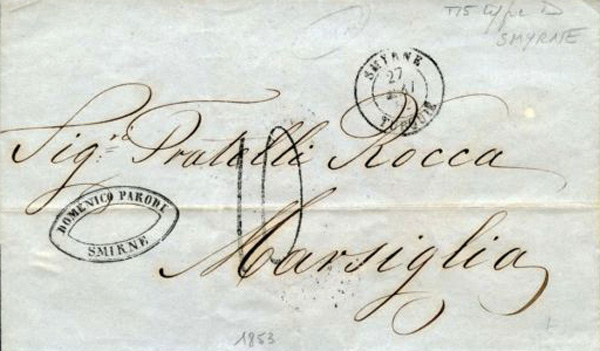 T15 type D
SMYRNE
SMYRNE
27
MAI
TURQUIE
Sig.ri Fratelli Rocca
10
DOMENICO PARODI
SMIRNE
Marsiglia
1853